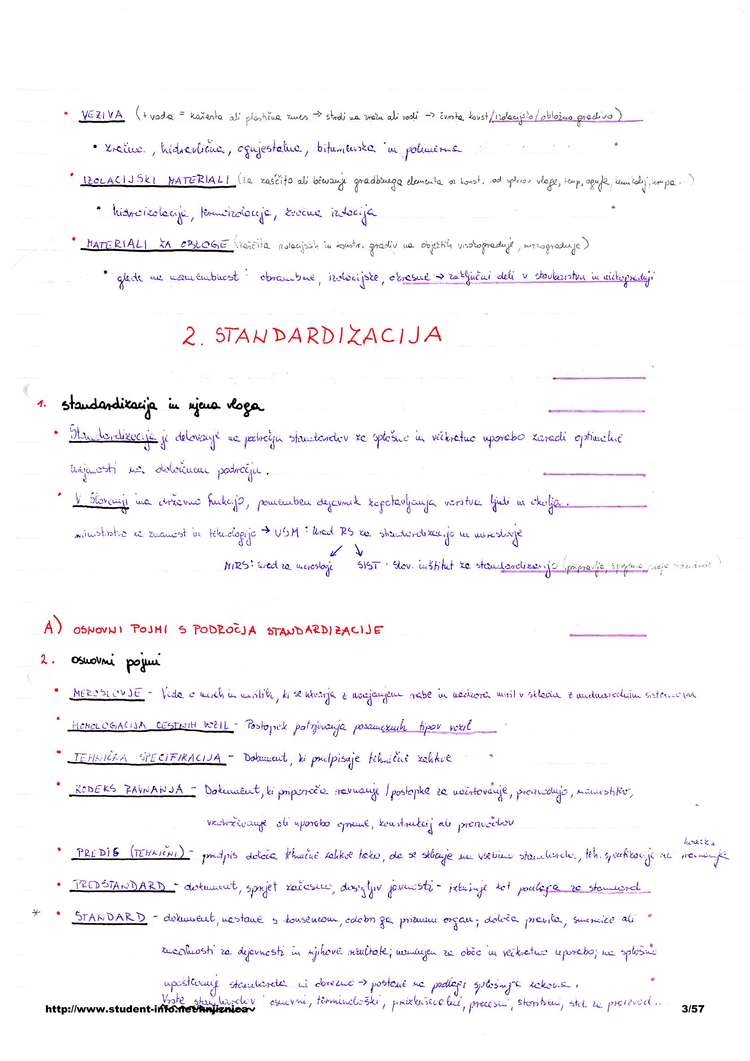 • VEZIVA (+ voda = kašasta ali plastična zmes → strdi na zraku ali vodi → čvrsta konst/izolacijsko/obložno gradivo)
• zračna, hidravlična, ognjestalna, bitumenska in polimerna
• IZOLACIJSKI MATERIALI (za zaščito ali ločevanje gradbenega elementa ali konst. od vplivov vlage, temp, ognja, kemikalij,
• hidroizolacija, termoizolacija, zvočna izolacija
• MATERIALI ZA OBLOGE (zaščita izolacijskih in konstr. gradiv na objektih visokogradnje, nizkogradnje)
• glede na namembnost: obrambne, izolacijske, okrasne → zaključni deli v stavbarstvu in visokogradnji
2. STANDARDIZACIJA
1. standardizacija in njena vloga
• Standardizacija je delovanje na področju standardov za splošno in večkratno uporabo zaradi optimalne
urejenosti na določenem področju.
• V Sloveniji ima državno funkcijo, pomemben dejavnik zagotavljanja varstva ljudi in okolja.
ministrstvo za znanost in tehnologijo → USM: Urad RS za standardizacijo in meroslovje
MIRS: urad za meroslovje SIST - Slov. inštitut za standardizacijo (pripravlja, sprejema standarde)
A) OSNOVNI POJMI S PODROČJA STANDARDIZACIJE
2. osnovni pojmi
• MEROSLOVJE - Veda o merah in merilih, ki se ukvarja z urejanjem rabe in nadzora meril v skladu z mednarodnim sistemom
• HOMOLOGACIJA CESTNIH VOZIL - Postopek potrjevanja posameznih tipov vozil
• TEHNIČNA SPECIFIKACIJA - Dokument, ki predpisuje tehnične zahteve
• KODEKS RAVNANJA - Dokument, ki priporoča ravnanje/postopke za načrtovanje, proizvodnjo, namestitev,
vzdrževanje ali uporabo opreme, konstrukcij ali proizvodov
• PREDIS (TEHNIČNI) - predpis določa tehnične zahteve tako, da se sklicuje na vsebino standarda, teh. specifikacije ali kodeksa ravnanja
• PREDSTANDARD - dokument, sprejet začasno, dosegljiv javnosti - rabi kot podlaga za standard
* • STANDARD - dokument, nastane s konsenzom, odobri ga priznan organ; določa pravila, smernice ali
značilnosti za dejavnosti in njihove rezultate; namenjen za občo in večkratno uporabo; na splošno
upoštevanje standarda ni obvezno → postane na podlagi splošnega zakona.
Vrste standardov: osnovni, terminološki, preskuševalni, procesni, storitveni, std. za proizvod...
http://www.student-info.net/knjiznica~ 3/57